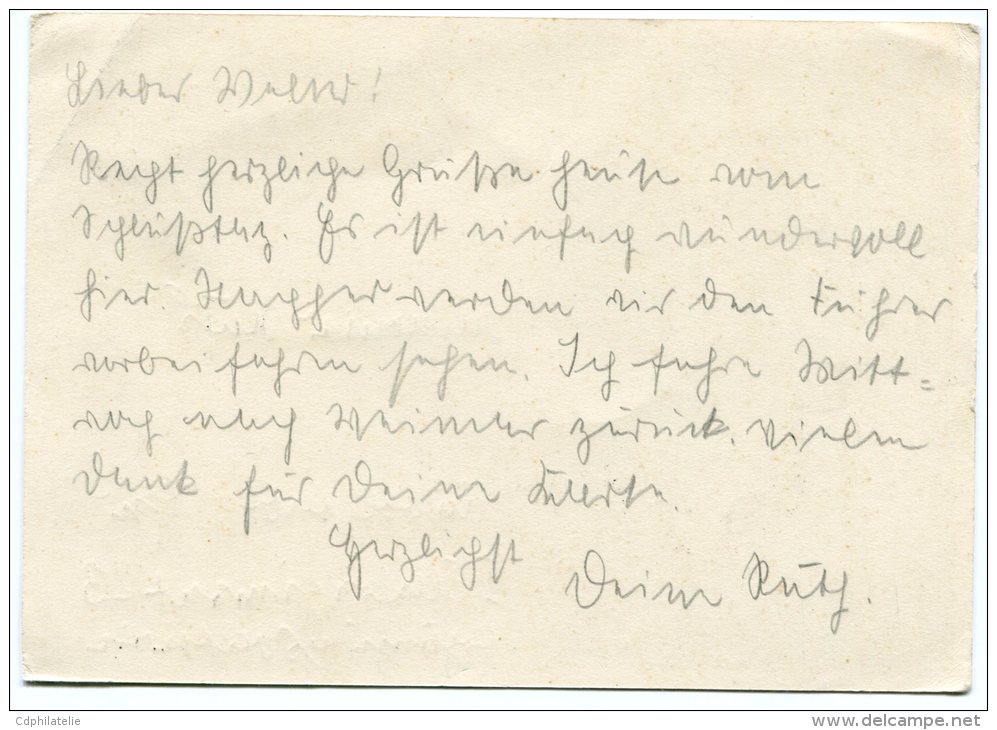 Lieber Walter!
Recht herzliche Grüße heute vom
Schlußtag. Es ist einfach wundervoll
hier. Nachher werden wir den Führer
vorbeifahren sehen. Ich fahre Mitt-
woch nach Weimar zurück. Vielen
Dank für Deine Karte.
Herzlichst
Deine Ruth.
Cdphilatelie
www.delcampe.net